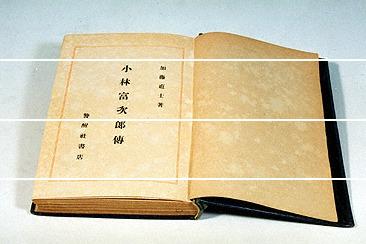 加藤直士著
小林富次郎傳
警醒社書店